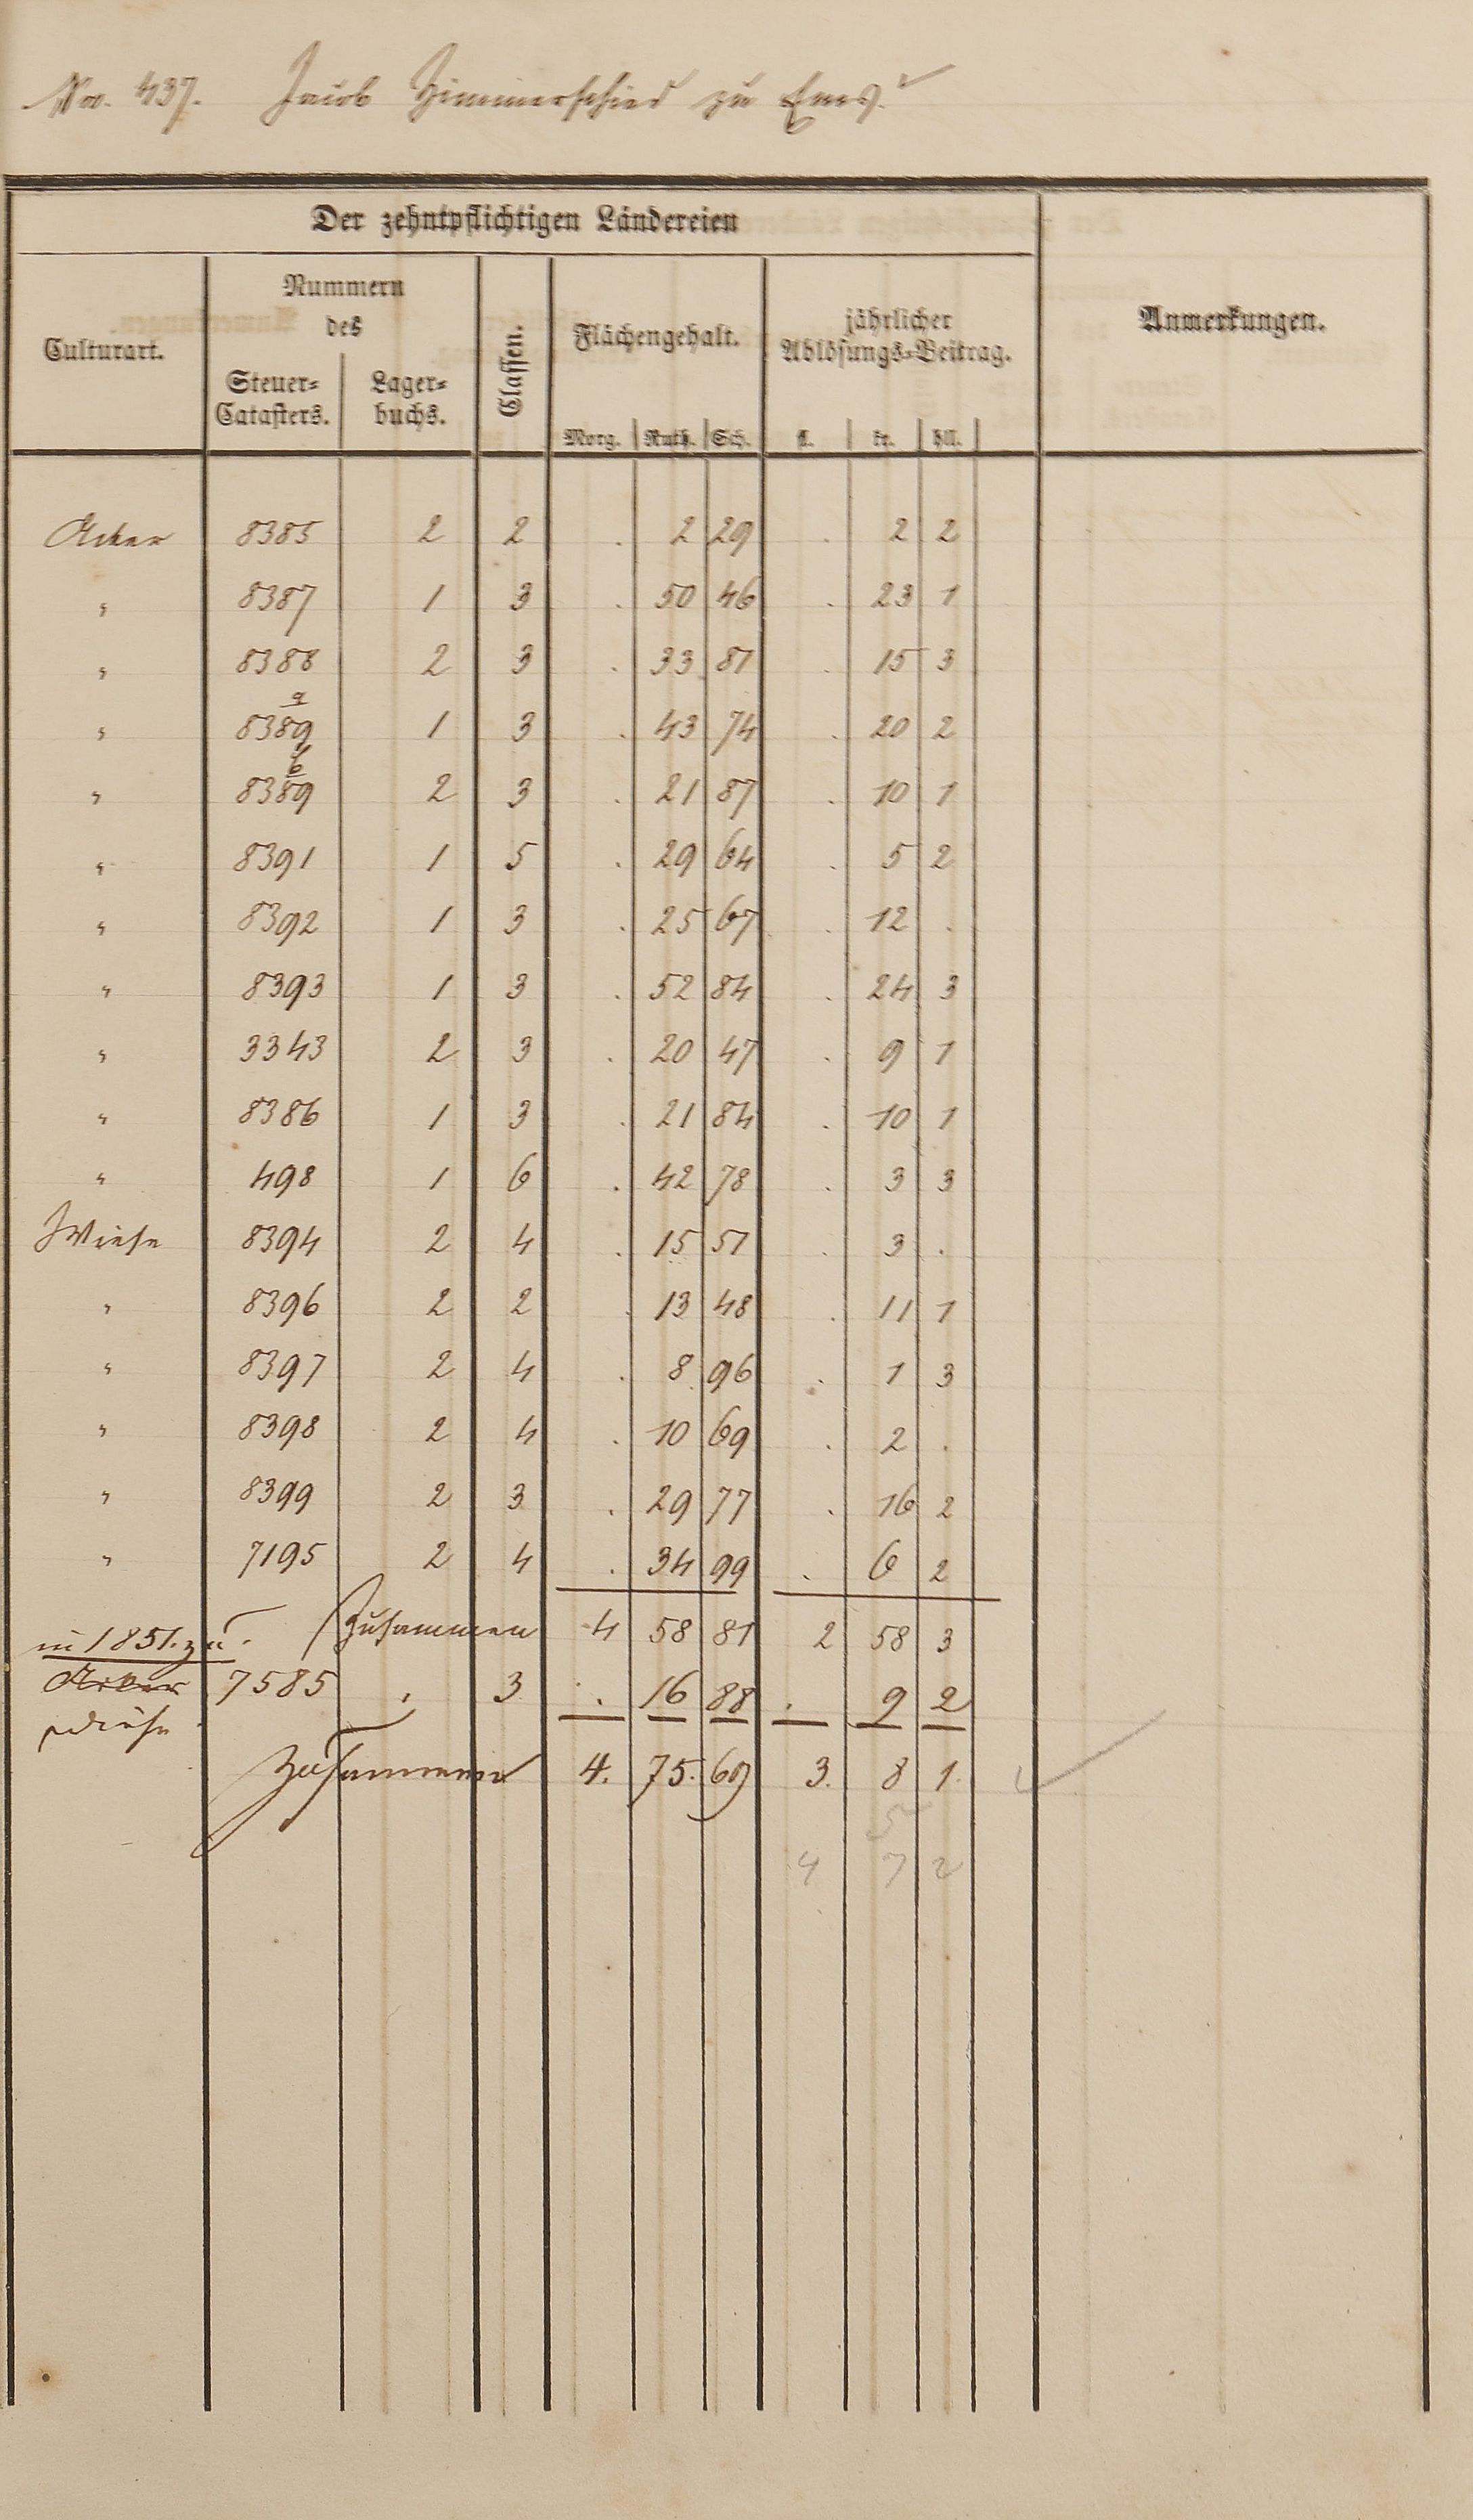 No. 437. Jacob Zimmerschied zu Ems.
Der zehntpflichtigen Ländereien
Culturart.
Nummern des
Steuer-Catasters.
Lager-buchs.
Classen.
Flächengehalt.
Morg. Ruth. Sch.
jährlicher Ablösungs-Beitrag.
fl. kr. hll.
Anmerkungen.
Acker 8385 2 2 . 2 29 . 2 2
" 8387 1 3 . 50 46 . 23 1
" 8388 2 3 . 33 81 . 15 3
" 8389 a 1 3 . 43 74 . 20 2
" 8389 b 2 3 . 21 87 . 10 1
" 8391 1 5 . 29 64 . 5 2
" 8392 1 3 . 25 67 . 12 .
" 8393 1 3 . 52 84 . 24 3
" 3343 2 3 . 20 47 . 9 1
" 8386 1 3 . 21 84 . 10 1
" 498 1 6 . 42 78 . 3 3
Wiese 8394 2 4 . 15 51 . 3 .
" 8396 2 2 . 13 48 . 11 1
" 8397 2 4 . 8 96 . 1 3
" 8398 2 4 . 10 69 . 2 .
" 8399 2 3 . 29 77 . 16 2
" 7195 2 4 . 34 99 . 6 2
Zusammen 4 58 81 2 58 3
in 1851. zu.
Acker 7585 . 3 . 16 88 . 9 2
Wiese
Zusammen 4. 75. 69 3. 8 1.
5
4 7 2